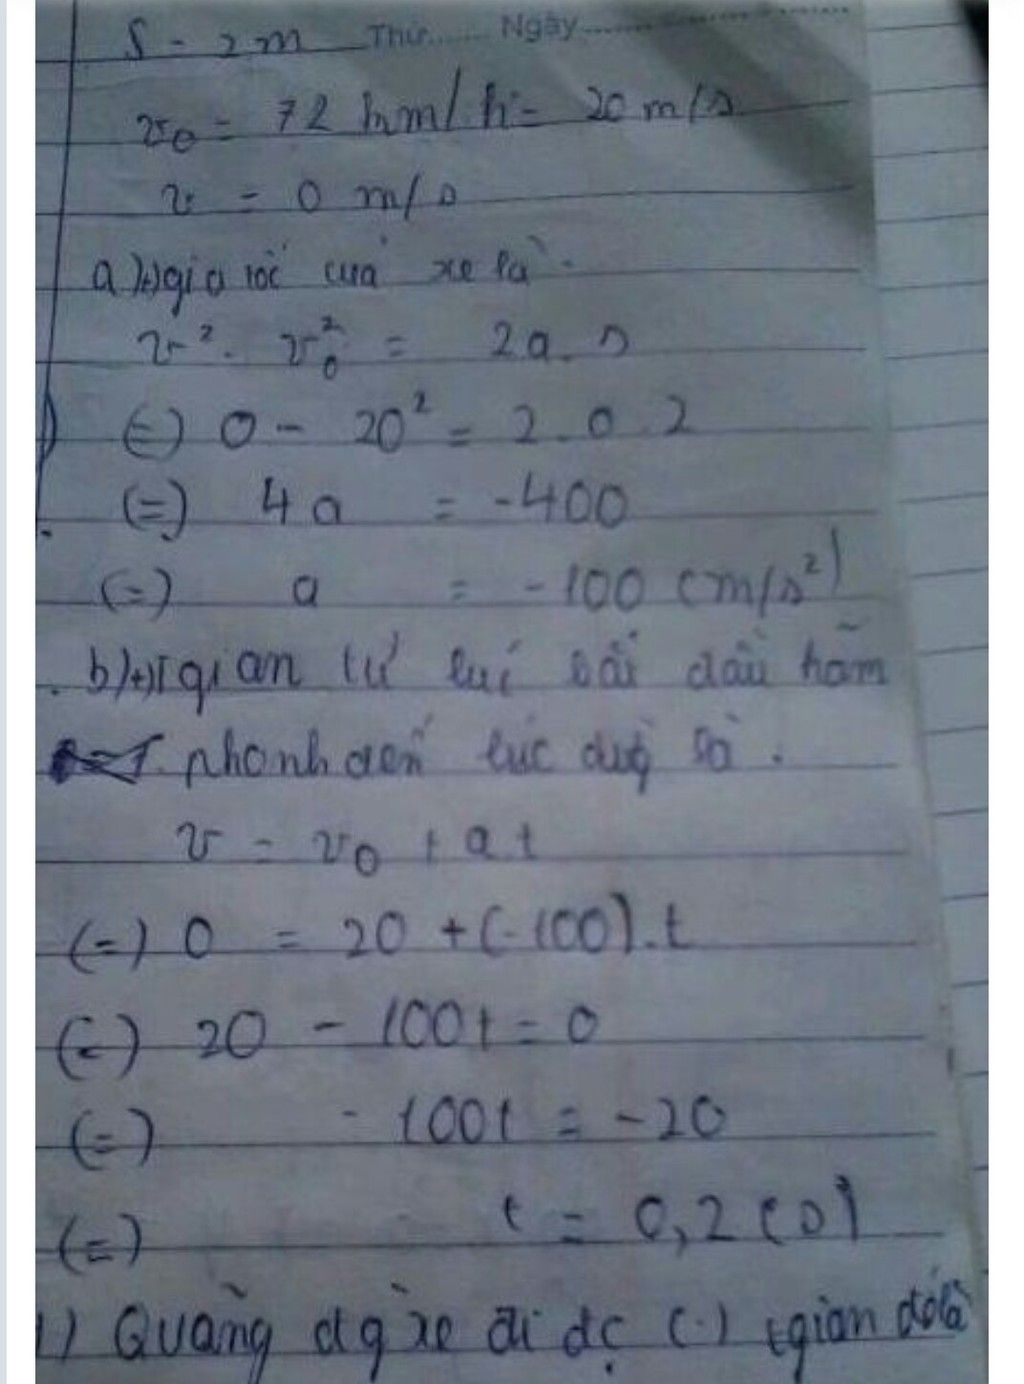 S = 2m Thứ...... Ngày..........
v₀ = 72 km/h = 20 m/s
v = 0 m/s
a) +) gia tốc của xe là:
v² - v₀² = 2a.s
(=) 0 - 20² = 2.a.2
(=) 4a = -400
(=) a = -100 (m/s²)
b) +) Tgian từ lúc bắt đầu hãm
phanh đến lúc dừg là:
v = v₀ + a.t
(=) 0 = 20 + (-100).t
(=) 20 - 100t = 0
(=) -100t = -20
(=) t = 0,2 (s)
) Quãng đg xe đi đc (.) tgian đó là